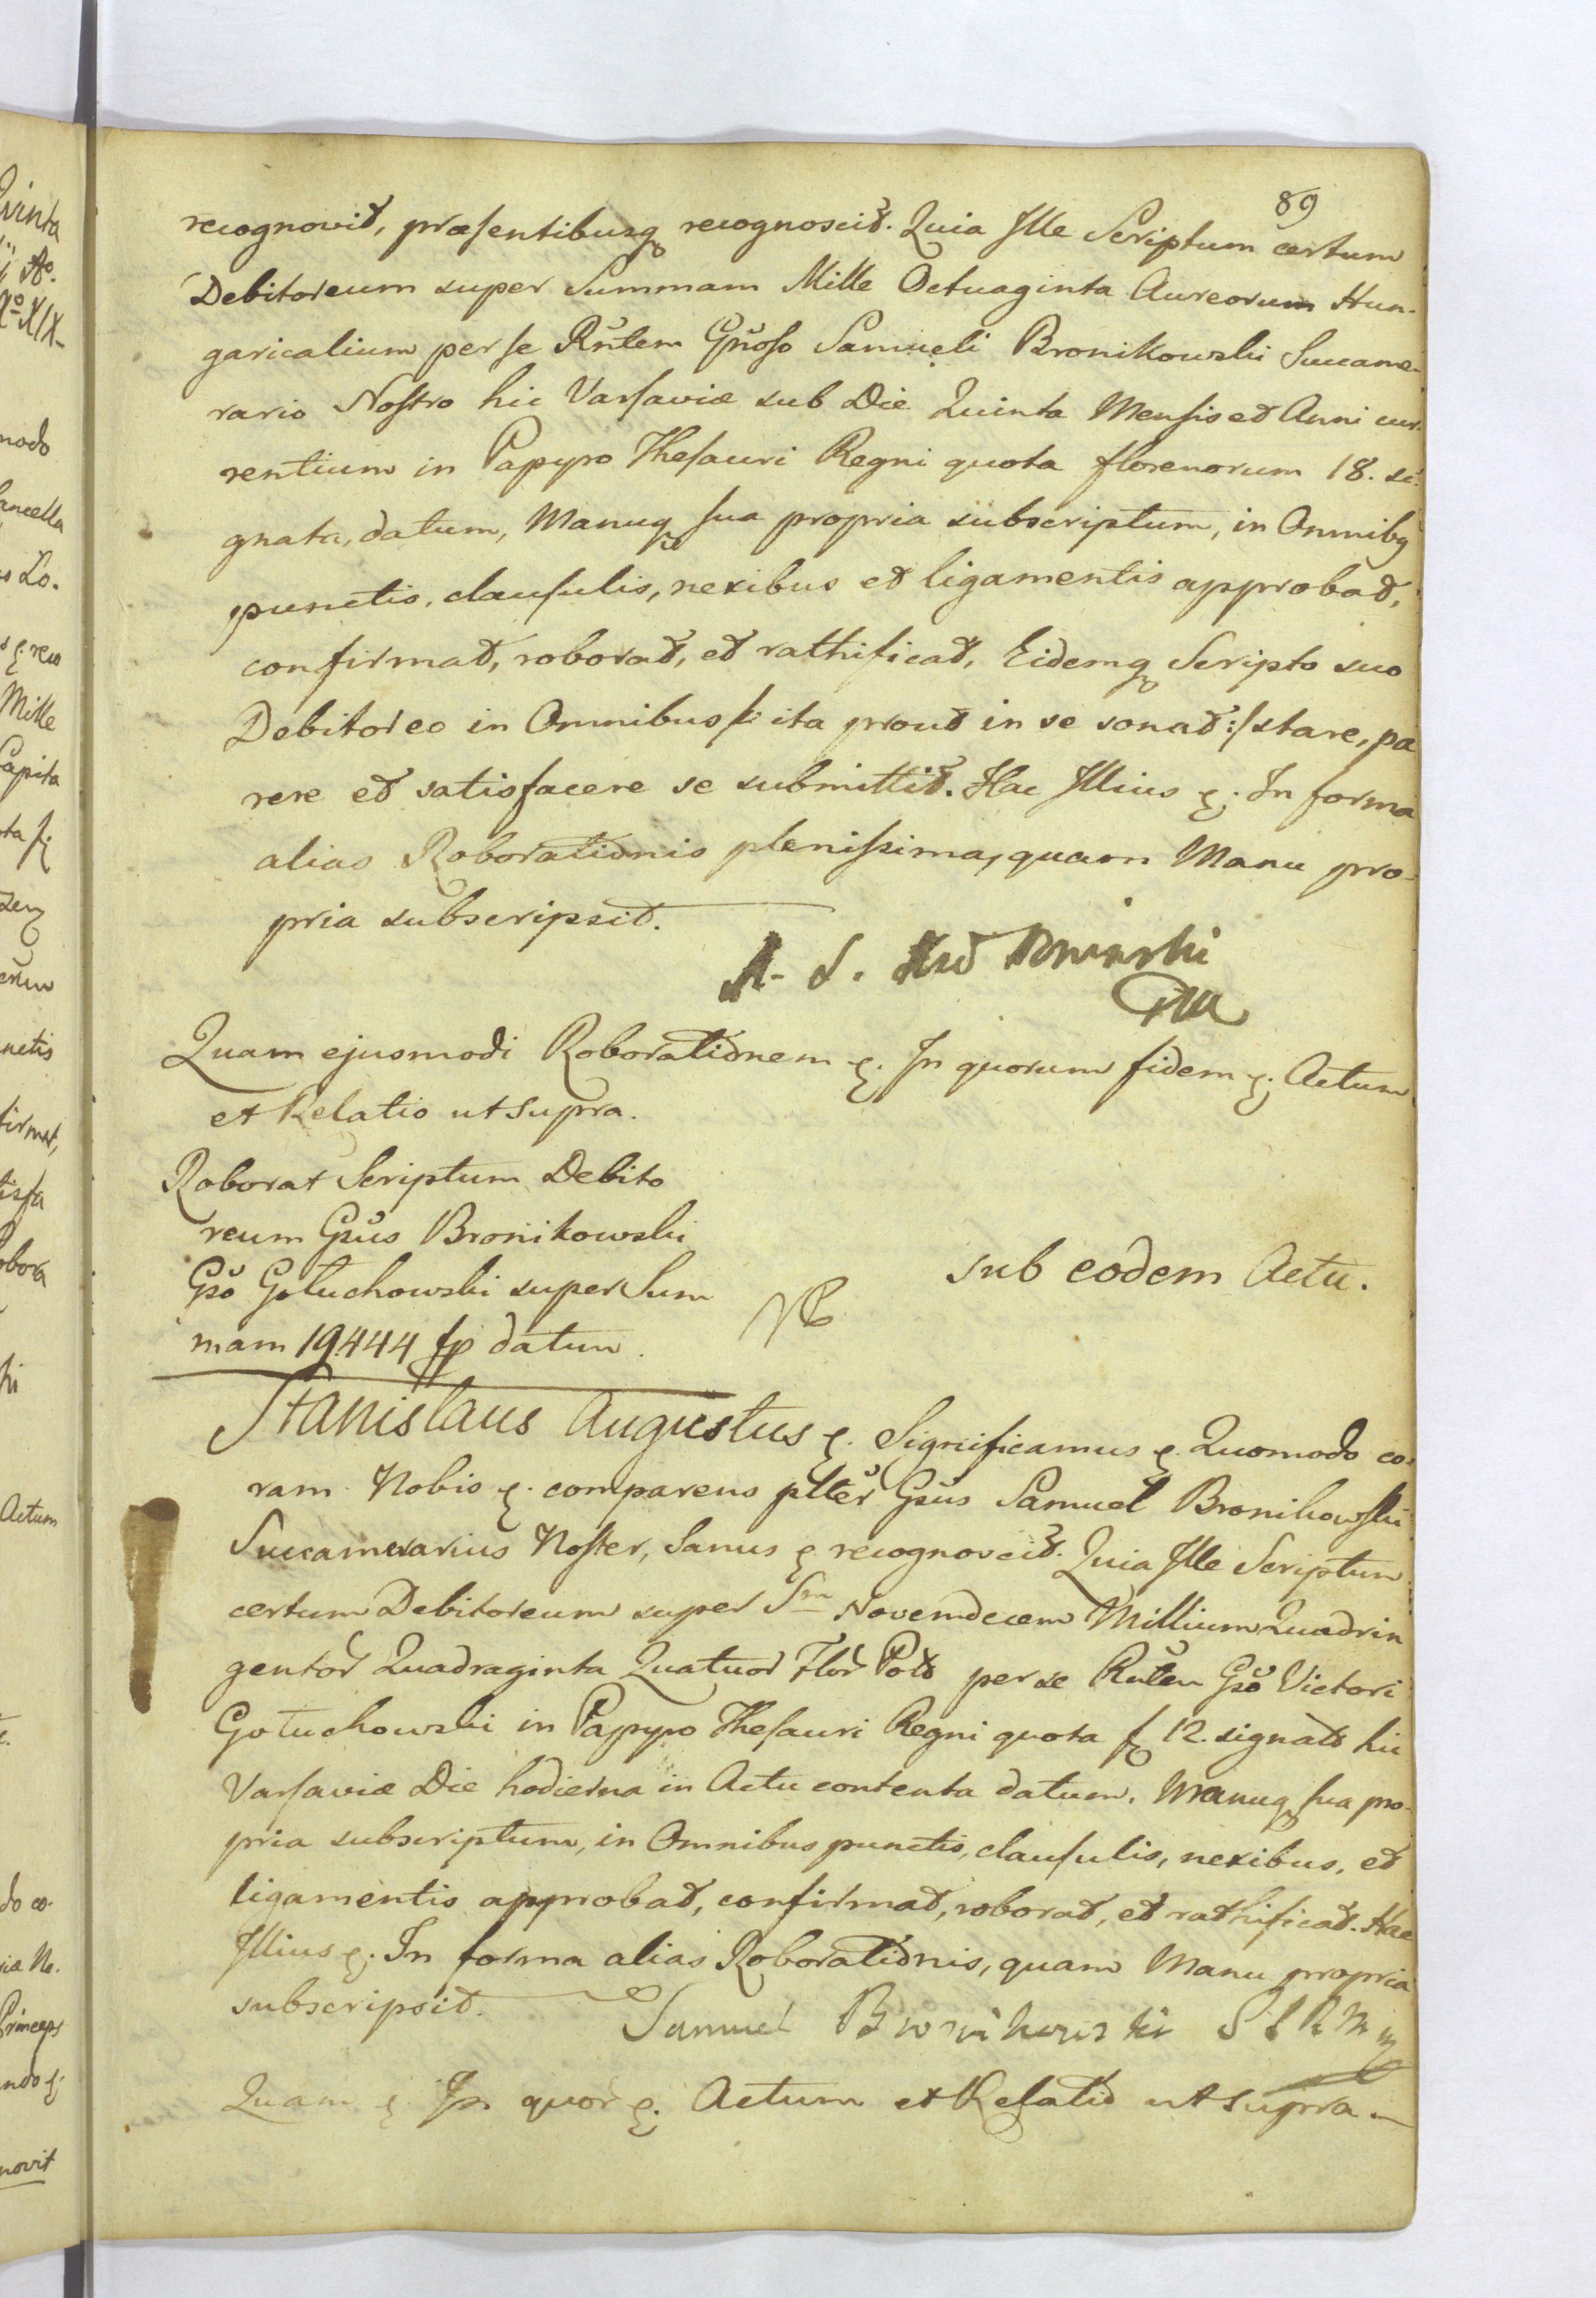 89
recognovit, præsentibusq recognoscit. Quia Ille Scriptum certum
Debitoreum super Summam Mille Octuaginta Aureorum Hun-
garicalium per se Rñtem Gñoso Samueli Bronikowski Succame-
rario Nostro hic Varsaviæ sub Die Quinta Mensis et Anni cur-
rentium in Papyro Thesauri Regni quota florenorum 18. si-
gnata, datum, Manuq sua propria subscriptum, in Omnibq
punctis, clausulis, nexibus et ligamentis approbat,
confirmat, roborat, et rathificat, Eidemq Scripto suo
Debitoreo in Omnibus /: ita prout in se sonat :/ stare, pa
rere et satisfacere se submittit. Hac Illius &. In forma
alias Roborationis plenissima, quam Manu pro-
pria subscripsit.
Quam ejusmodi Roborationem &. In quorum fidem &. Actum
et Relatio ut supra.
Roborat Scriptum Debito
reum Gsus Bronikowski
Gso Gołuchowski super Sum
mam 19444 fp datum.
sub eodem Actu.
Stanislaus Augustus &. Significamus & Quomodo co-
ram Nobis &. comparens pltĕr Gsus Samuel Bronikowski
Succamerarius Noster, Sanus & recognovcit. Quia Ille Scriptum
certum Debitoreum super Sm Novemdecem Millium Quadrin
gentor Quadraginta Quatuor Flor Pols per se Rñtem Gso Victori
Gołuchowski in Papyro Thesauri Regni quota f 12. signato hic
Varsaviæ Die hodierna in Actu contenta datum. Manuq sua pro-
pria subscriptum, in Omnibus punctis, clausulis, nexibus, et
ligamentis approbat, confirmat, roborat, et rathificat. Hac
Illius &. In forma alias Roborationis, quam Manu propria
subscripsit.
Samuel Bronikowski
Quam & In quor &. Actum et Relatio ut supra.